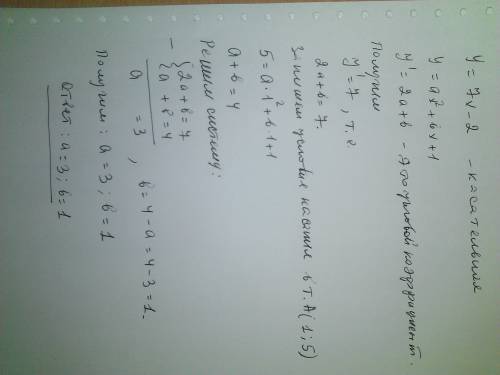 y = 7x - 2 - касательная
y = ax² + bx + 1
y' = 2a + b - это угловой коэффициент.
Получим
y' = 7, т.е.
2a + b = 7.
Запишем условие касания в т. A(1; 5)
5 = a·1² + b·1 + 1
a + b = 4
Решим систему:
- { 2a + b = 7
{ a + b = 4
a = 3, b = 4 - a = 4 - 3 = 1.
Получим: a = 3; b = 1
Ответ: a = 3; b = 1